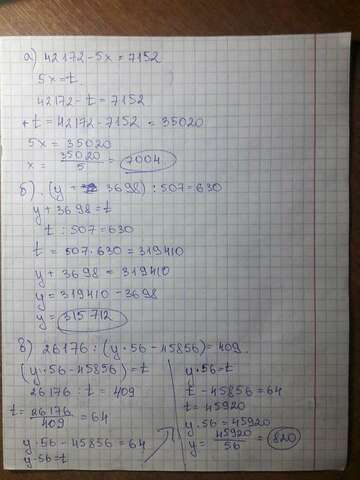 а) 42172-5x=7152
5x=t
42172-t=7152
t=42172-7152=35020
5x=35020
x=35020/5=7004
б) (y+3698):507=630
y+3698=t
t:507=630
t=507·630=319410
y+3698=319410
y=319410-3698
y=315712
в) 26176:(y·56-45856)=409
(y·56-45856)=t
26176:t=409
t=26176/409=64
y·56-45856=64
y·56=t
y·56=t
t-45856=64
t=45920
y·56=45920
y=45920/56=820